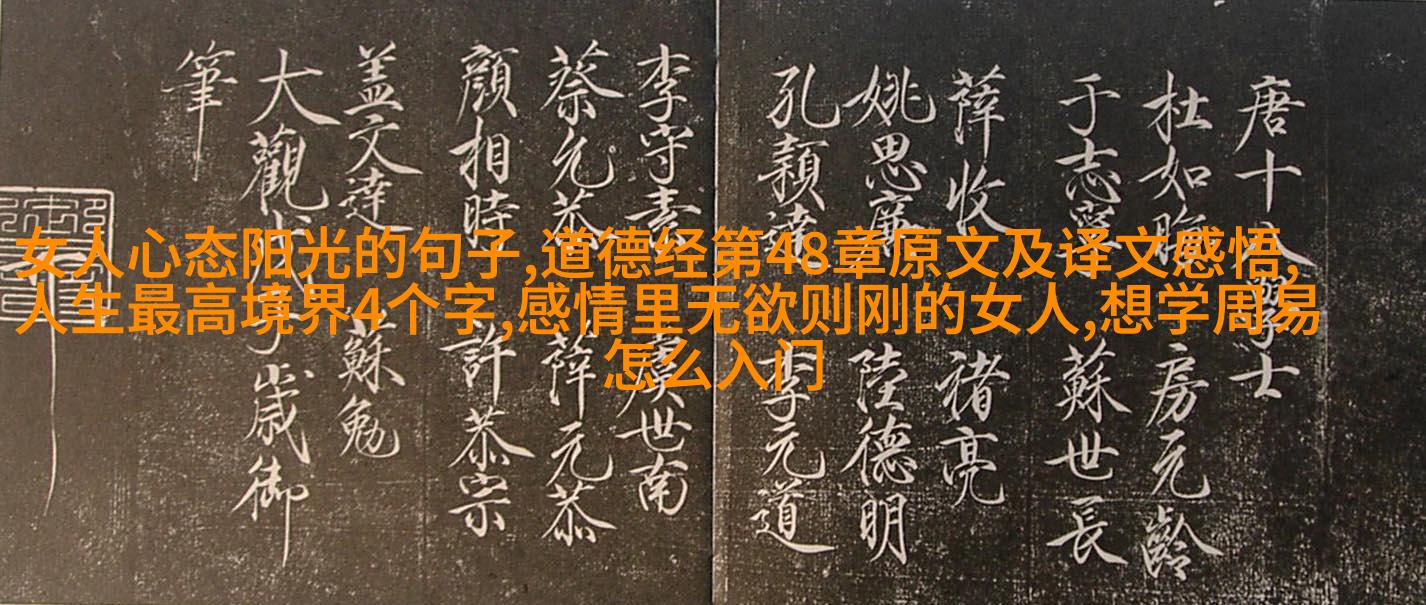 女人心态阳光的句子,道德经第48章原文及译文感悟,
人生最高境界4个字,感情里无欲则刚的女人,想学周易
怎么入门
唐十八學士
杜如晦 房元齡
于志寧 蘇世長
薛收 褚亮
姚思廉 陸德明
孔穎達 李元道
李守素 虞世南
蔡允恭 薛元恭
顔相時 許恭宗
盖文達 蘇勉
大觀戊子歲御
筆